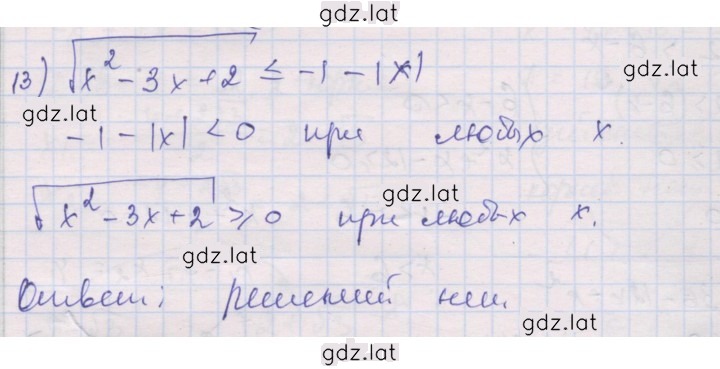 gdz.lat
13) √x² - 3x + 2 ≤ -1 - |x|
gdz.lat
gdz.lat
-1 - |x| < 0 при любых x.
gdz.lat
√x² - 3x + 2 ≥ 0 при любых x.
gdz.lat
Ответ: решений нет.
gdz.lat
gdz.lat